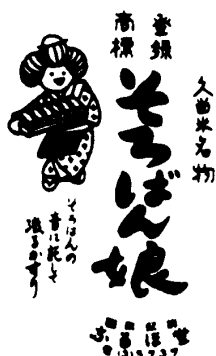 久留米名物
登録
商標
そろばん娘
そろばんの
音に託して
織るかすり